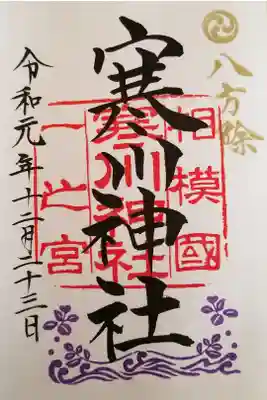 八方除
相模國
寒川神社
寒川神社
一之宮
令和元年十二月二十三日